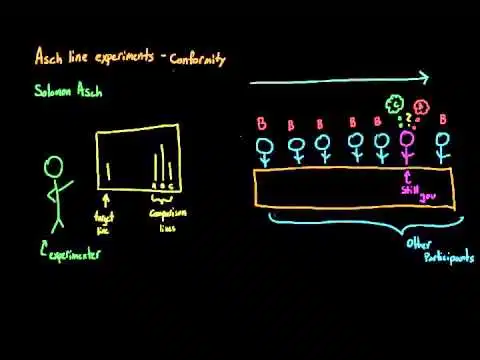 Asch line experiments - Conformity
Solomon Asch
B B B B B B
C B
?
A B C
target
line
Comparison
lines
experimenter
Still
you
Other
Participants